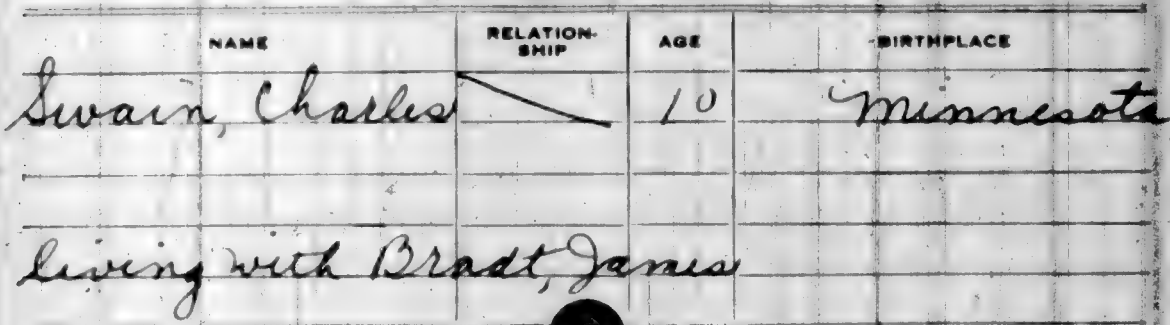 NAME RELATION-SHIP AGE BIRTHPLACE
Swain, Charles 10 Minnesota
living with Bradt, James